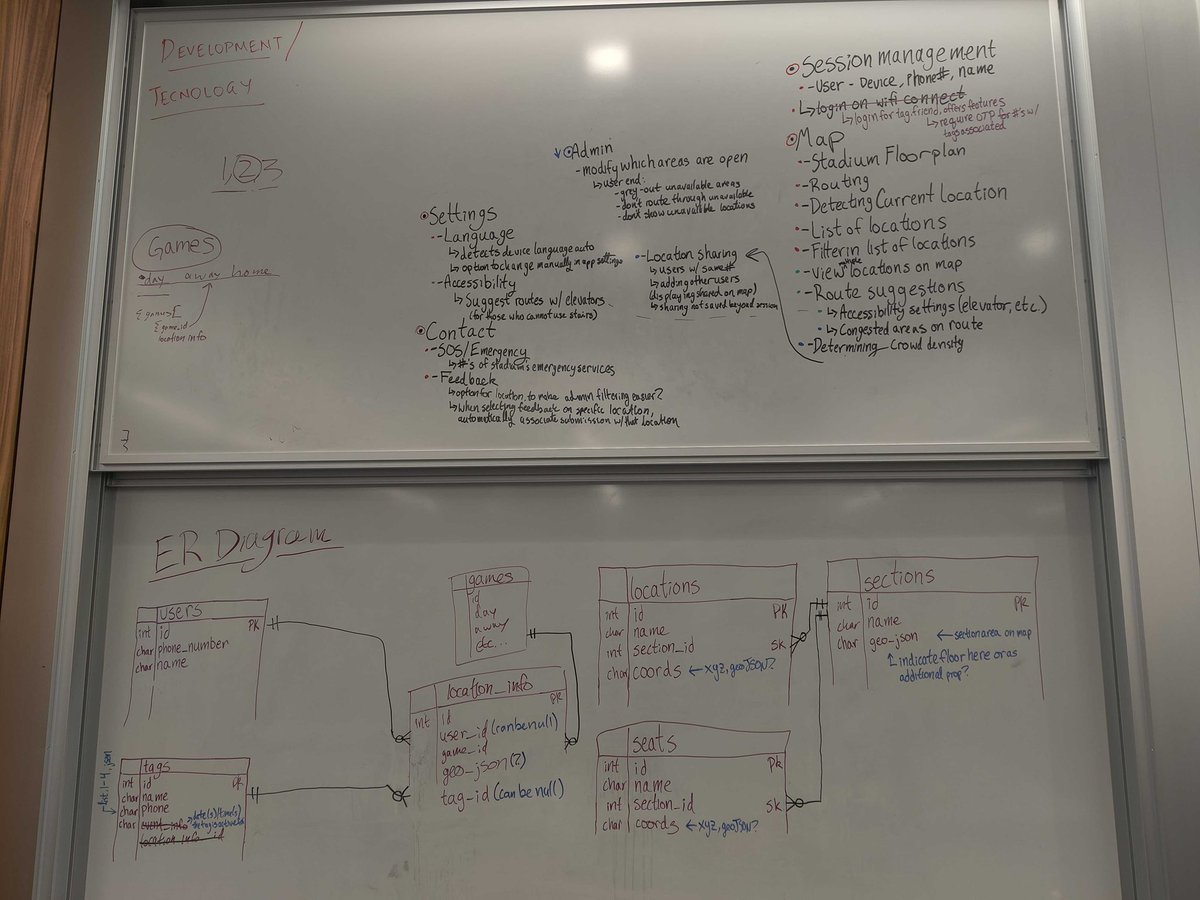 DEVELOPMENT/
TECNOLOGY
1, 2 3
Games
day away home
{games[
{game_id
location info
Settings
-Language
↳detects device language auto
↳option to change manually in app settings
-Accessibility
↳Suggest routes w/ elevators
(for those who cannot use stairs)
Contact
-SOS/Emergency
↳#'s of stadium's emergency services
-Feedback
↳option for location, to make admin filtering easier?
↳When selecting feedback on specific location,
automatically associate submission w/ that location
Admin
-modify which areas are open
↳user end:
-grey-out unavailable areas
-don't route through unavailable
-don't show unavailable locations
-Location sharing
↳users w/ same #
↳adding other users
(displaying shared on map)
↳sharing not saved beyond session
Session management
-User - Device, Phone#, name
↳login on wifi connect
↳login for tag, friend, offers features
↳require OTP for #'s w/
tags associated
Map
-Stadium Floorplan
-Routing
-Detecting Current location
-List of locations
-Filter in list of locations
-View whole locations on map
-Route suggestions
↳Accessibility settings (elevator, etc.)
↳Congested areas on route
-Determining Crowd density
ER Diagram
users
int id PK
char phone_number
char name
tags
int id PK
char name
char phone
char event_info →date(s)/time(s)
location_info_id
games
id
day
away
etc...
location_info
PK
int id
user_id (can be null)
game_id
geo_json (?)
tag_id (can be null)
locations
int id PK
char name
int section_id SK
char coords ← xyz, geoJSON?
seats
int id PK
char name
int section_id SK
char coords ← xyz, geoJSON?
sections
int id PK
char name
char geo_json ← section area on map
↑ indicate floor here or as
additional prop?